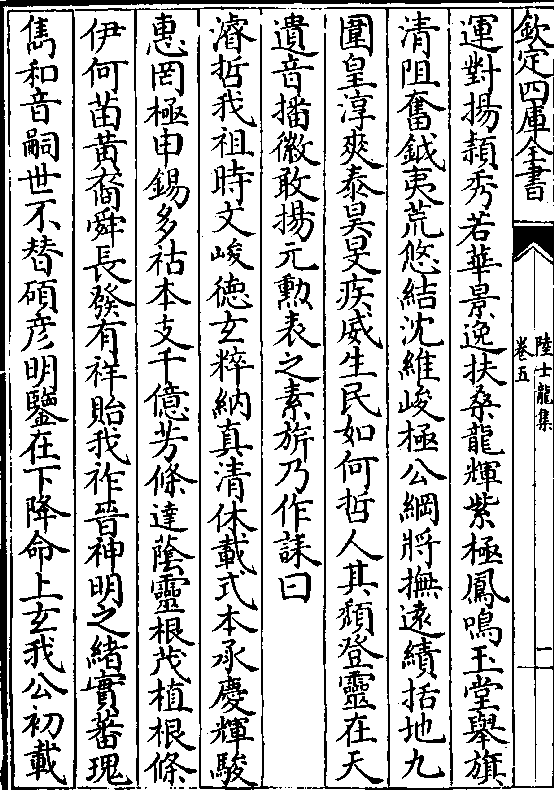 欽定四庫全書
陸士龍集
卷五
二
運對揚頴秀若華景逸扶桑龍輝紫極鳳鳴玉堂舉旗
清阻奮鉞夷荒悠結沈維峻極公綱將撫遠績括地九
圍皇淳爽泰昊旻疾威生民如何哲人其頽登靈在天
遺音播徽敢揚元勲表之素旂乃作誄曰
濬哲我祖時文峻徳玄粹納真清休載式本承慶輝駿
惠罔極申錫多祜本支千億芳條達蔭靈根茂植根條
伊何苗黄裔舜長發有祥貽我祚晉神明之緒實蕃瑰
雋和音嗣世不替碩彦明鑒在下降命上玄我公初載